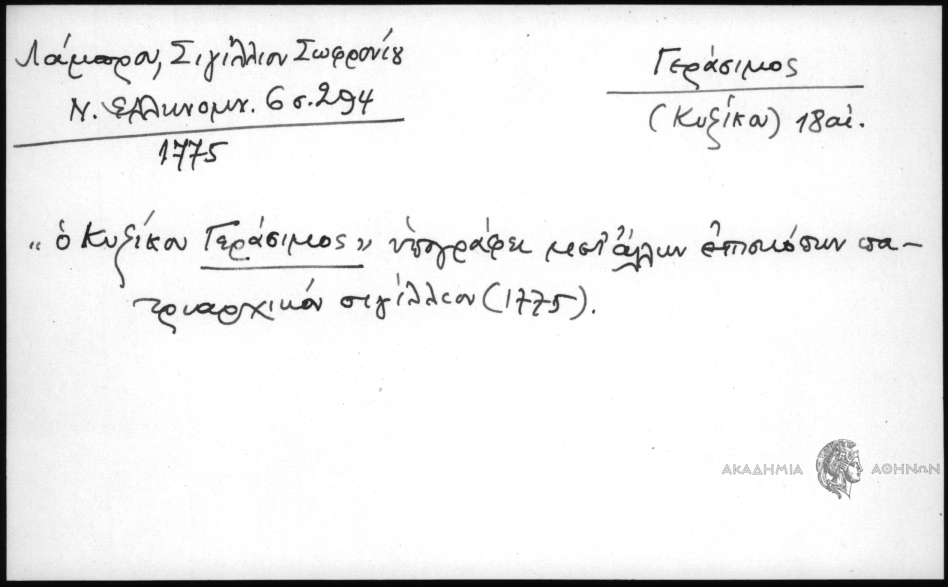 Λάμπρου, Σιγίλλιον Σωφρονίου
Ν. Ἑλληνομν. 6 σ. 294
1775
Γεράσιμος
(Κυζίκου) 18 αἰ.
"ὁ Κυζίκου Γεράσιμος" ὑπογράφει μετ' ἄλλων ἐπισκόπων πα-
τριαρχικόν σιγίλλιον (1775).
ΑΚΑΔΗΜΙΑ ΑΘΗΝΩΝ